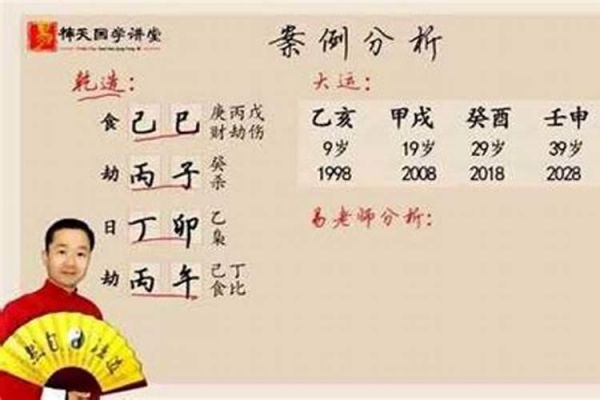 易 神天国学讲堂
案例分析
乾造：
食 己巳 庚丙戊
财劫伤
劫 丙子 癸
杀
日 丁卯 乙
枭
劫 丙午 己丁
食比
大运：
乙亥 甲戌 癸酉 壬申
9岁 19岁 29岁 39岁
1998 2008 2018 2028
易老师分析：